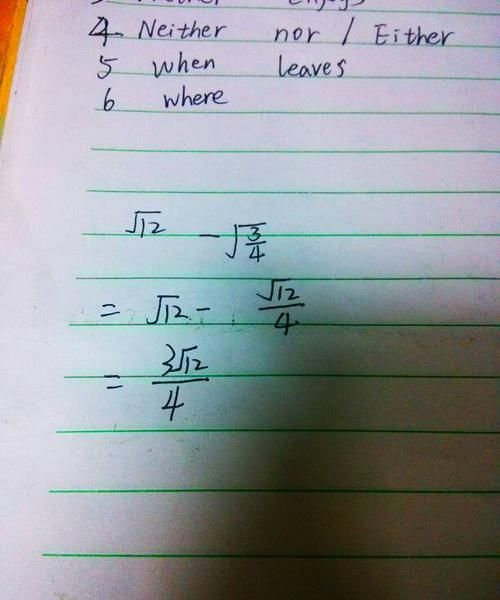 4 Neither nor / Either
5 when leaves
6 where
√12 - √(3/4)
= √12 - √12/4
= 3√12/4